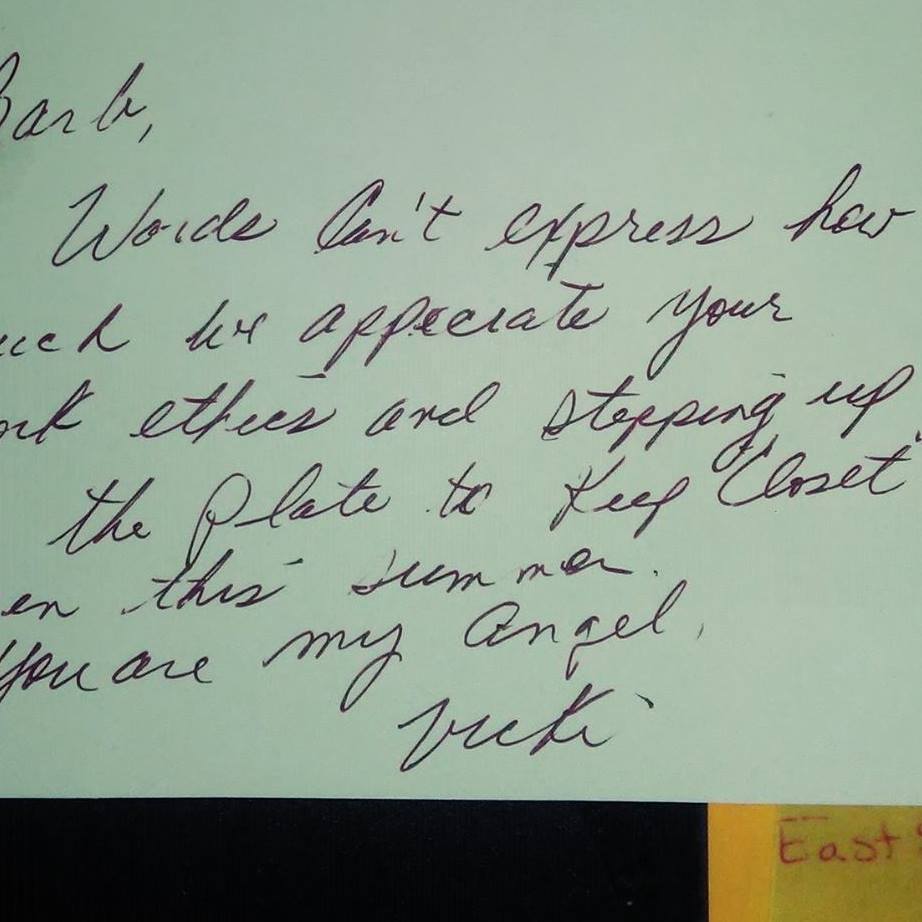 Barb,
Words Can't express how
uch we appeciate your
ork ethics and stepping up
the Plate to Keep "Closet"
en this summer.
You are my angel,
Vicki
East